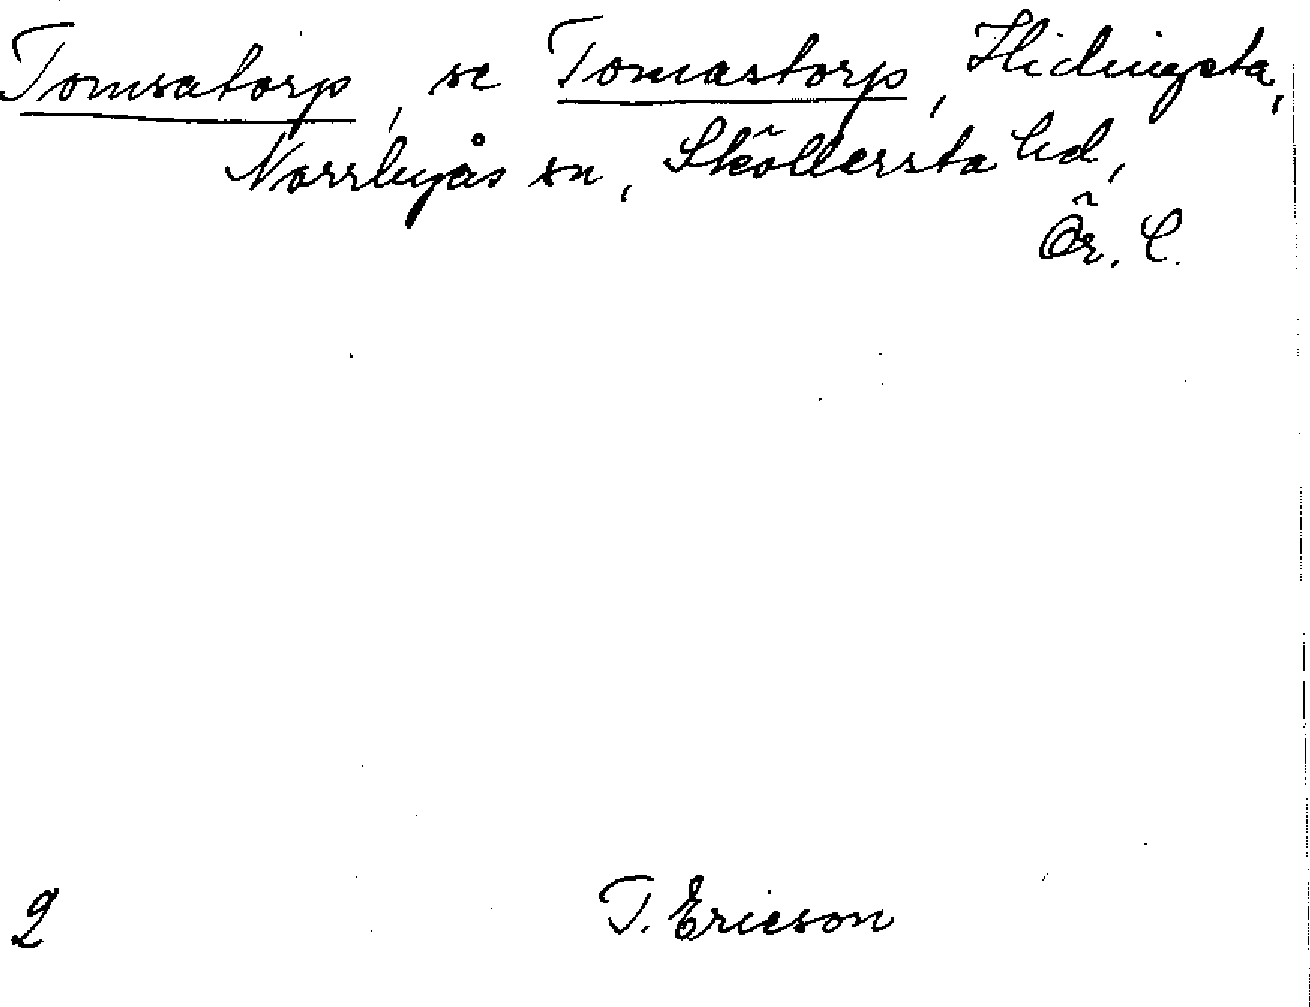 Tomsatorp, se Tomastorp, Hidingsta,
Norrbyås sn, Sköllersta hd,
Ör. l.
2 T. Ericson